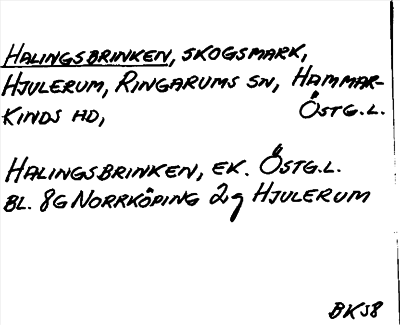 HALINGSBRINKEN, SKOGSMARK,
HJULERUM, RINGARUMS SN, HAMMAR-
KINDS HD, ÖSTG.L.
HALINGSBRINKEN, EK. ÖSTG.L.
BL. 8G NORRKÖPING 2g HJULERUM
BKS8